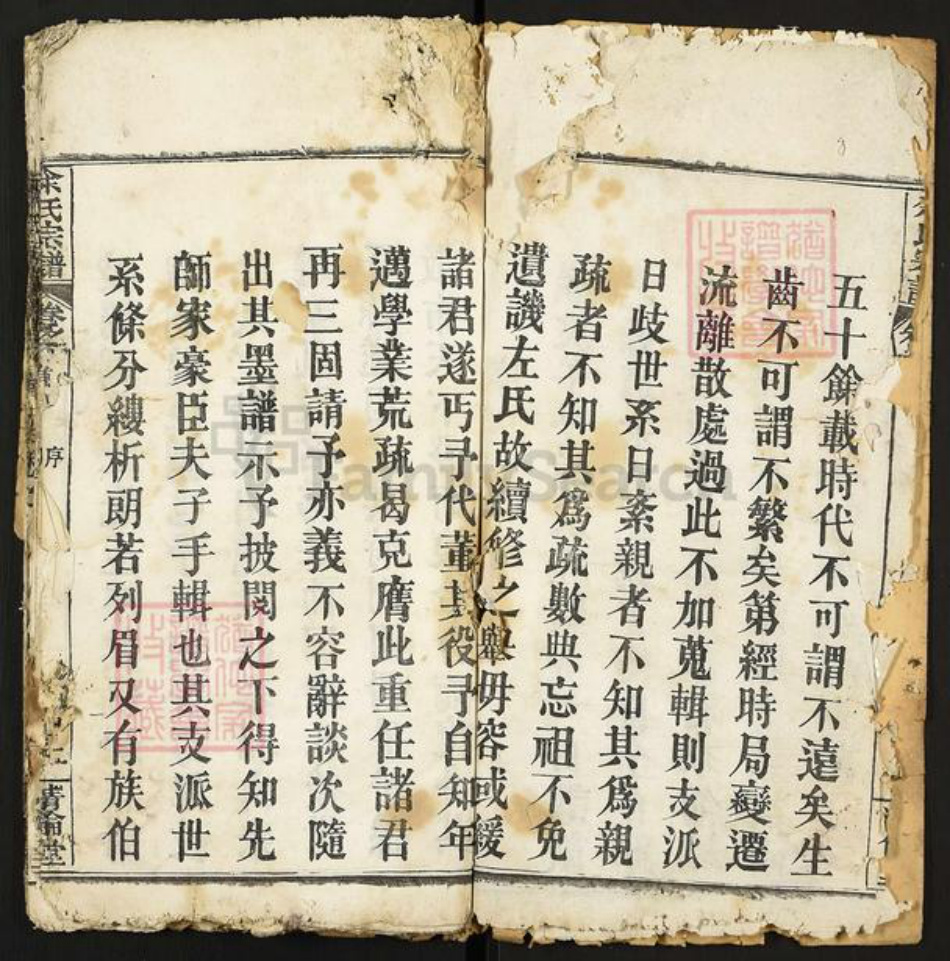 五十餘載時代不可謂不遠矣生
齒不可謂不繁矣第經時局變遷
流離散處過此不加蒐輯則支派
日歧世系日紊親者不知其爲親
疏者不知其爲疏數典忘祖不免
遺譏左氏故續修之舉毋容或緩
諸君遂丐予代董其役予自知年
邁學業荒疏曷克膺此重任諸君
再三固請予亦義不容辭談次隨
出其墨譜示予披閱之下得知先
師家豪臣夫子手輯也其支派世
系條分縷析朗若列眉又有族伯
余氏宗譜
卷之
序
清倫堂
FamilySearch